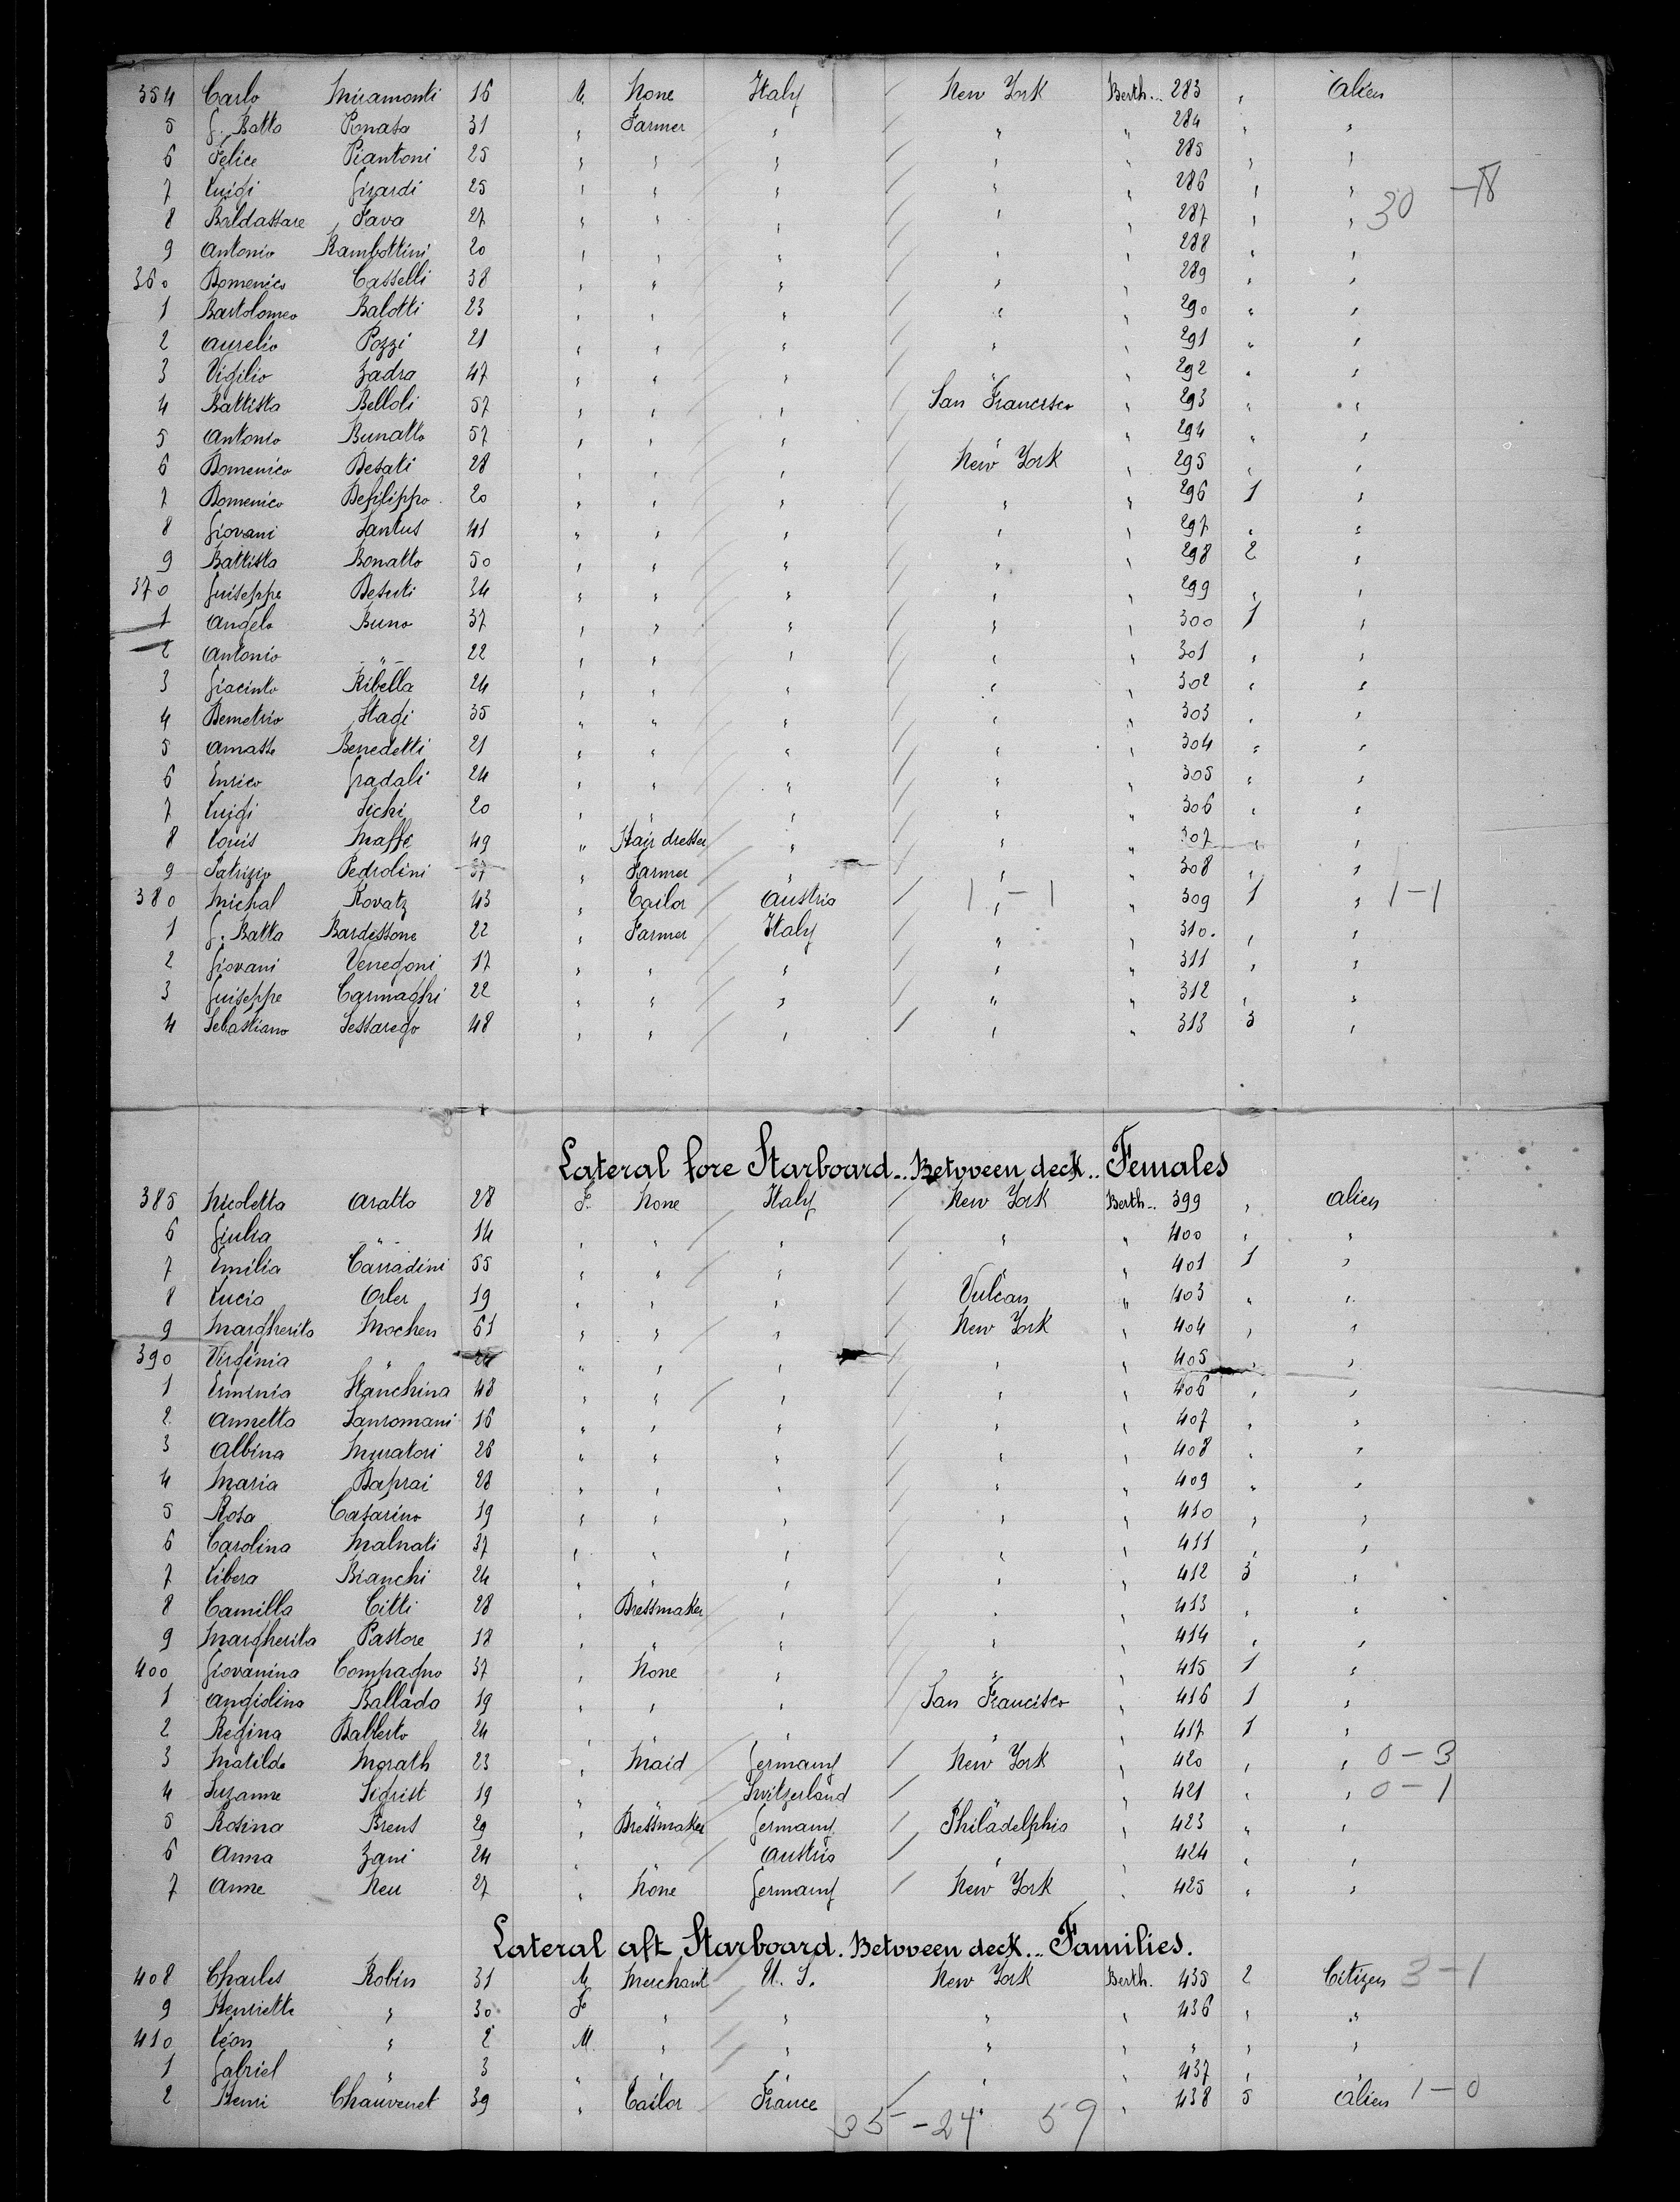 354 Carlo Miramonti 16 M. None Italy / New York Berth... 283 " Alien
5 G. Batta Ponasa 31 " Farmer " / " " 284 " "
6 Felice Piantoni 25 " " " / " " 285 " "
7 Luigi Girardi 25 " " " / " " 286 " " 30 -18
8 Baldassare Fava 27 " " " / " " 287 " "
9 Antonio Rambottini 20 " " " / " " 288 " "
360 Domenico Casselli 38 " " " / " " 289 " "
1 Bartolomeo Balotti 23 " " " / " " 290 " "
2 Aurelio Pozzi 21 " " " / " " 291 " "
3 Vigilio Zadra 47 " " " / " " 292 " "
4 Battista Belloli 57 " " " / San Francisco " 293 " "
5 Antonio Bunatto 57 " " " / " " 294 " "
6 Domenico Desati 28 " " " / New York " 295 " "
7 Domenico Defilippo 20 " " " / " " 296 1 "
8 Giovani Santus 41 " " " / " " 297 " "
9 Battista Bonatto 50 " " " / " " 298 2 "
370 Guiseppe Desuti 34 " " " / " " 299 " "
1 Angelo Buno 37 " " " / " " 300 1 "
2 Antonio " 22 " " " / " " 301 " "
3 Giacinto Ribella 24 " " " / " " 302 " "
4 Demetrio Stagi 35 " " " / " " 303 " "
5 Amasse Benedetti 21 " " " / " " 304 " "
6 Enrico Gradali 24 " " " / " " 305 " "
7 Luigi Sichi 20 " " " / " " 306 " "
8 Louis Maffe 49 " Hair dresser " / " " 307 " "
9 Patrizio Pedrolini 37 " Farmer " / " " 308 " "
380 Michal Kovatz 43 " Tailor Austria / " 1 - 1 " 309 1 " 1-1
1 G. Batta Bardessone 22 " Farmer Italy / " " 310. " "
2 Giovani Venegoni 17 " " " / " " 311 " "
3 Guiseppe Carmaghi 22 " " " / " " 312 " "
4 Sebastiano Sessarego 48 " " " / " " 313 3 "
Lateral fore Starboard.. Between deck.. Females
385 Nicoletta Aratto 28 F. None Italy / New York Berth.. 399 " Alien
6 Giulia " 14 " " " / " " 400 " "
7 Emilia Carradini 55 " " " / " " 401 1 "
8 Lucia Orler 19 " " " / Vulcan " 403 " "
9 Margherita Mochen 61 " " " / New York " 404 " "
390 Virginia " 24 " " " / " " 405 " "
1 Erminia Stanchina 48 " " " / " " 406 " "
2 Annetta Sanromani 16 " " " / " " 407 " "
3 Albina Muratori 26 " " " / " " 408 " "
4 Maria Daprai 28 " " " / " " 409 " "
5 Rosa Casarino 19 " " " / " " 410 " "
6 Carolina Malnati 37 " " " / " " 411 " "
7 Libera Bianchi 24 " " " / " " 412 3 "
8 Camilla Citti 28 " Dressmaker " / " " 413 " "
9 Margherita Pastore 18 " " " / " " 414 " "
400 Giovanina Compagno 37 " None " / " " 415 1 "
1 Angiolina Ballado 19 " " " / San Francisco " 416 1 "
2 Regina Balberto 24 " " " / " " 417 1 "
3 Matilde Morath 23 " Maid Germany / New York " 420 " " 0-3
4 Suzanne Sigrist 19 " " Switzerland / " " 421 " " 0-1
5 Rosina Brens 29 " Dressmaker Germany / Philadelphia " 423 " "
6 Anna Zani 24 " " Austria / " " 424 " "
7 Anne Neu 27 " None Germany / New York " 425 " "
Lateral aft Starboard. Between deck... Families.
408 Charles Robin 31 M Merchant U. S. New York Berth. 435 2 Citizen 3-1
9 Henriette " 30 F " " " " 436 " "
410 Léon " 2 M " " " " " " "
1 Gabriel " 3 " " " " " 437 "
2 Henri Chauvenet 39 " Tailor France " " 438 5 Alien 1-0
35 - 24 59